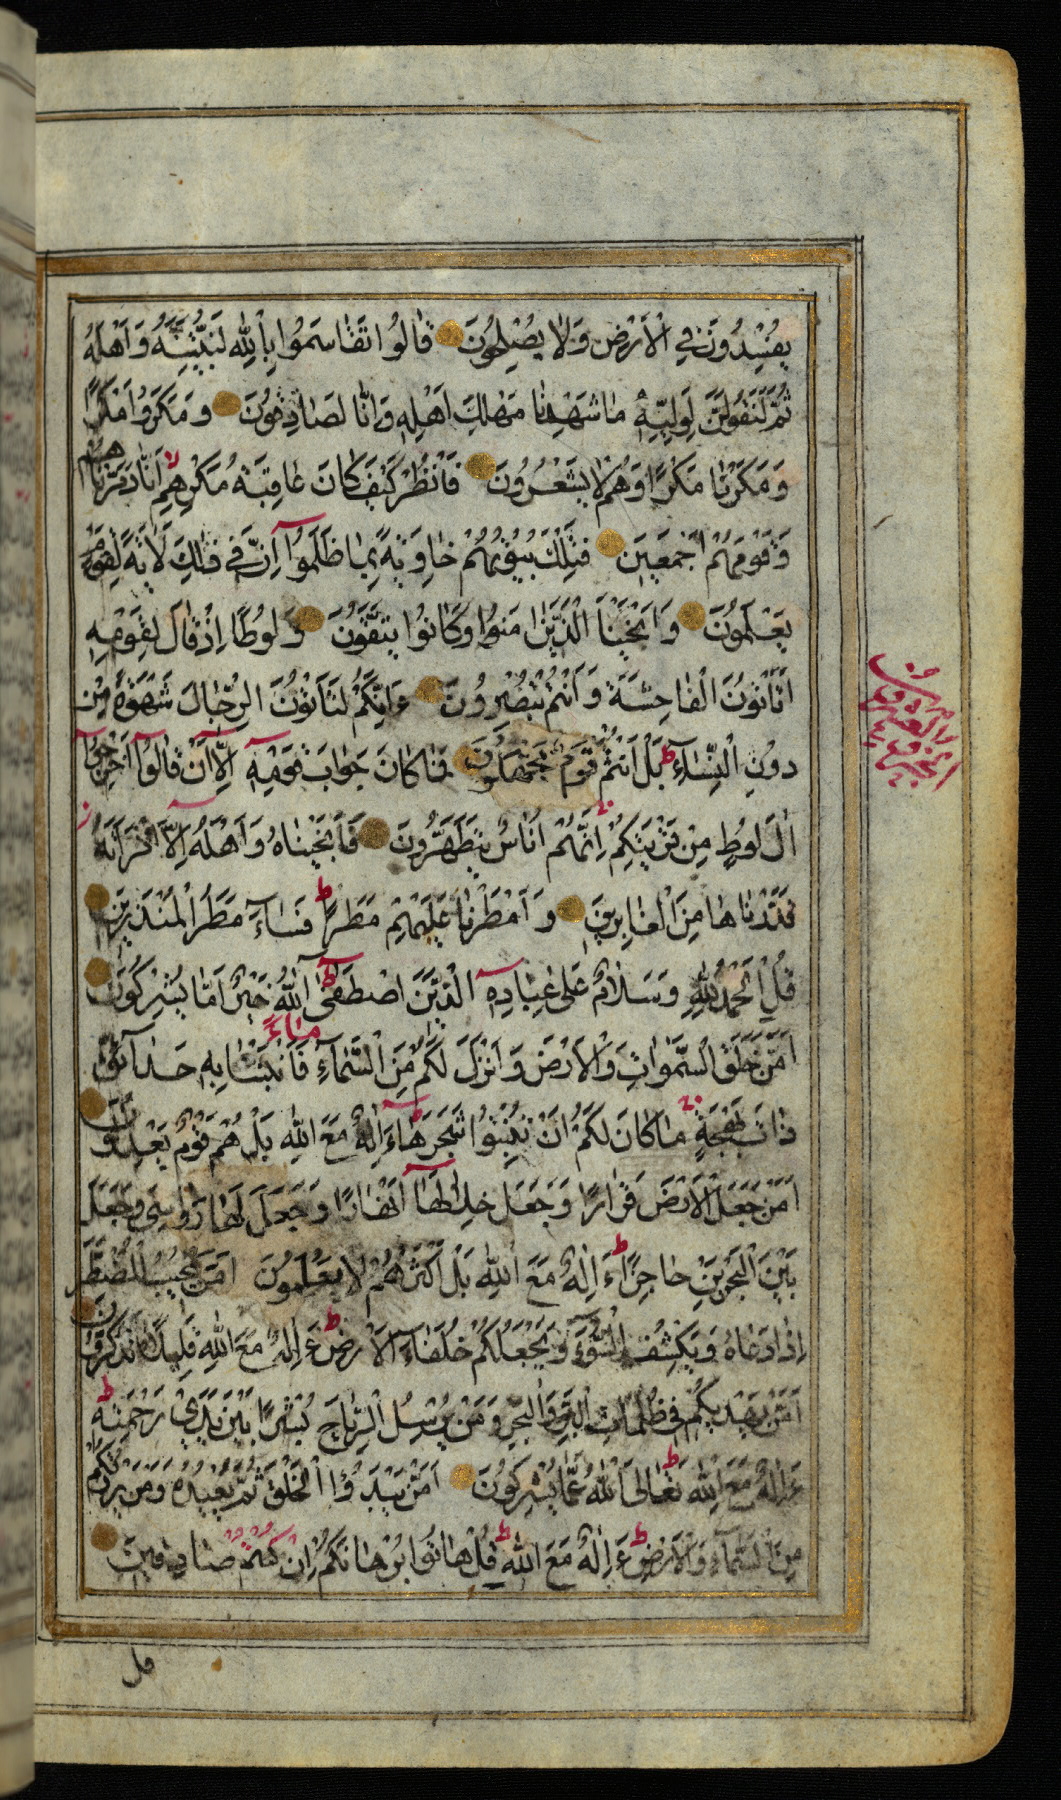 يُفْسِدُونَ فِي الْاَرْضِ وَلَا يُصْلِحُونَ قَالُوا تَقَاسَمُوا بِاللّٰهِ لَنُبَيِّتَنَّهُ وَاَهْلَهُ
ثُمَّ لَنَقُولَنَّ لِوَلِيِّهِ مَا شَهِدْنَا مَهْلِكَ اَهْلِهِ وَاِنَّا لَصَادِقُونَ وَمَكَرُوا مَكْرًا
وَمَكَرْنَا مَكْرًا وَهُمْ لَا يَشْعُرُونَ فَانْظُرْ كَيْفَ كَانَ عَاقِبَةُ مَكْرِهِمْ اَنَّا دَمَّرْنَاهُمْ
وَقَوْمَهُمْ اَجْمَعِينَ فَتِلْكَ بُيُوتُهُمْ خَاوِيَةً بِمَا ظَلَمُوا اِنَّ فِي ذٰلِكَ لَاٰيَةً لِقَوْمٍ
يَعْلَمُونَ وَاَنْجَيْنَا الَّذِينَ اٰمَنُوا وَكَانُوا يَتَّقُونَ وَلُوطًا اِذْ قَالَ لِقَوْمِهِ
اَتَأْتُونَ الْفَاحِشَةَ وَاَنْتُمْ تُبْصِرُونَ ءَاِنَّكُمْ لَتَأْتُونَ الرِّجَالَ شَهْوَةً مِنْ
دُونِ النِّسَاءِ بَلْ اَنْتُمْ قَوْمٌ تَجْهَلُونَ فَمَا كَانَ جَوَابَ قَوْمِهِ اِلَّا اَنْ قَالُوا اَخْرِجُوا
اٰلَ لُوطٍ مِنْ قَرْيَتِكُمْ اِنَّهُمْ اُنَاسٌ يَتَطَهَّرُونَ فَاَنْجَيْنَاهُ وَاَهْلَهُ اِلَّا امْرَاَتَهُ
قَدَّرْنَاهَا مِنَ الْغَابِرِينَ وَاَمْطَرْنَا عَلَيْهِمْ مَطَرًا فَسَاءَ مَطَرُ الْمُنْذَرِينَ
قُلِ الْحَمْدُ لِلّٰهِ وَسَلَامٌ عَلٰى عِبَادِهِ الَّذِينَ اصْطَفٰى اٰللّٰهُ خَيْرٌ اَمَّا يُشْرِكُونَ
اَمَّنْ خَلَقَ السَّمٰوَاتِ وَالْاَرْضَ وَاَنْزَلَ لَكُمْ مِنَ السَّمَاءِ مَاءً فَاَنْبَتْنَا بِهِ حَدَائِقَ
ذَاتَ بَهْجَةٍ مَا كَانَ لَكُمْ اَنْ تُنْبِتُوا شَجَرَهَا ءَاِلٰهٌ مَعَ اللّٰهِ بَلْ هُمْ قَوْمٌ يَعْدِلُونَ
اَمَّنْ جَعَلَ الْاَرْضَ قَرَارًا وَجَعَلَ خِلَالَهَا اَنْهَارًا وَجَعَلَ لَهَا رَوَاسِيَ وَجَعَلَ
بَيْنَ الْبَحْرَيْنِ حَاجِزًا ءَاِلٰهٌ مَعَ اللّٰهِ بَلْ اَكْثَرُهُمْ لَا يَعْلَمُونَ اَمَّنْ يُجِيبُ الْمُضْطَرَّ
اِذَا دَعَاهُ وَيَكْشِفُ السُّوءَ وَيَجْعَلُكُمْ خُلَفَاءَ الْاَرْضِ ءَاِلٰهٌ مَعَ اللّٰهِ قَلِيلًا مَا تَذَكَّرُونَ
اَمَّنْ يَهْدِيكُمْ فِي ظُلُمَاتِ الْبَرِّ وَالْبَحْرِ وَمَنْ يُرْسِلُ الرِّيَاحَ بُشْرًا بَيْنَ يَدَيْ رَحْمَتِهِ
ءَاِلٰهٌ مَعَ اللّٰهِ تَعَالَى اللّٰهُ عَمَّا يُشْرِكُونَ اَمَّنْ يَبْدَؤُا الْخَلْقَ ثُمَّ يُعِيدُهُ وَمَنْ يَرْزُقُكُمْ
مِنَ السَّمَاءِ وَالْاَرْضِ ءَاِلٰهٌ مَعَ اللّٰهِ قُلْ هَاتُوا بُرْهَانَكُمْ اِنْ كُنْتُمْ صَادِقِينَ
قل